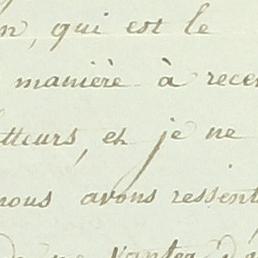 n, qui est le
manière à recev
tteurs, et je ne
nous avons ressent
vanter